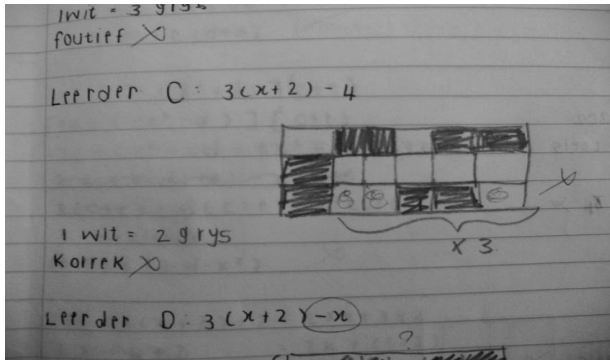 1wit = 3 grys
foutief X
Leerder C: 3(x+2) - 4
x 3
1 wit = 2 grys
Korrek X
Leerder D: 3(x+2) -x
?